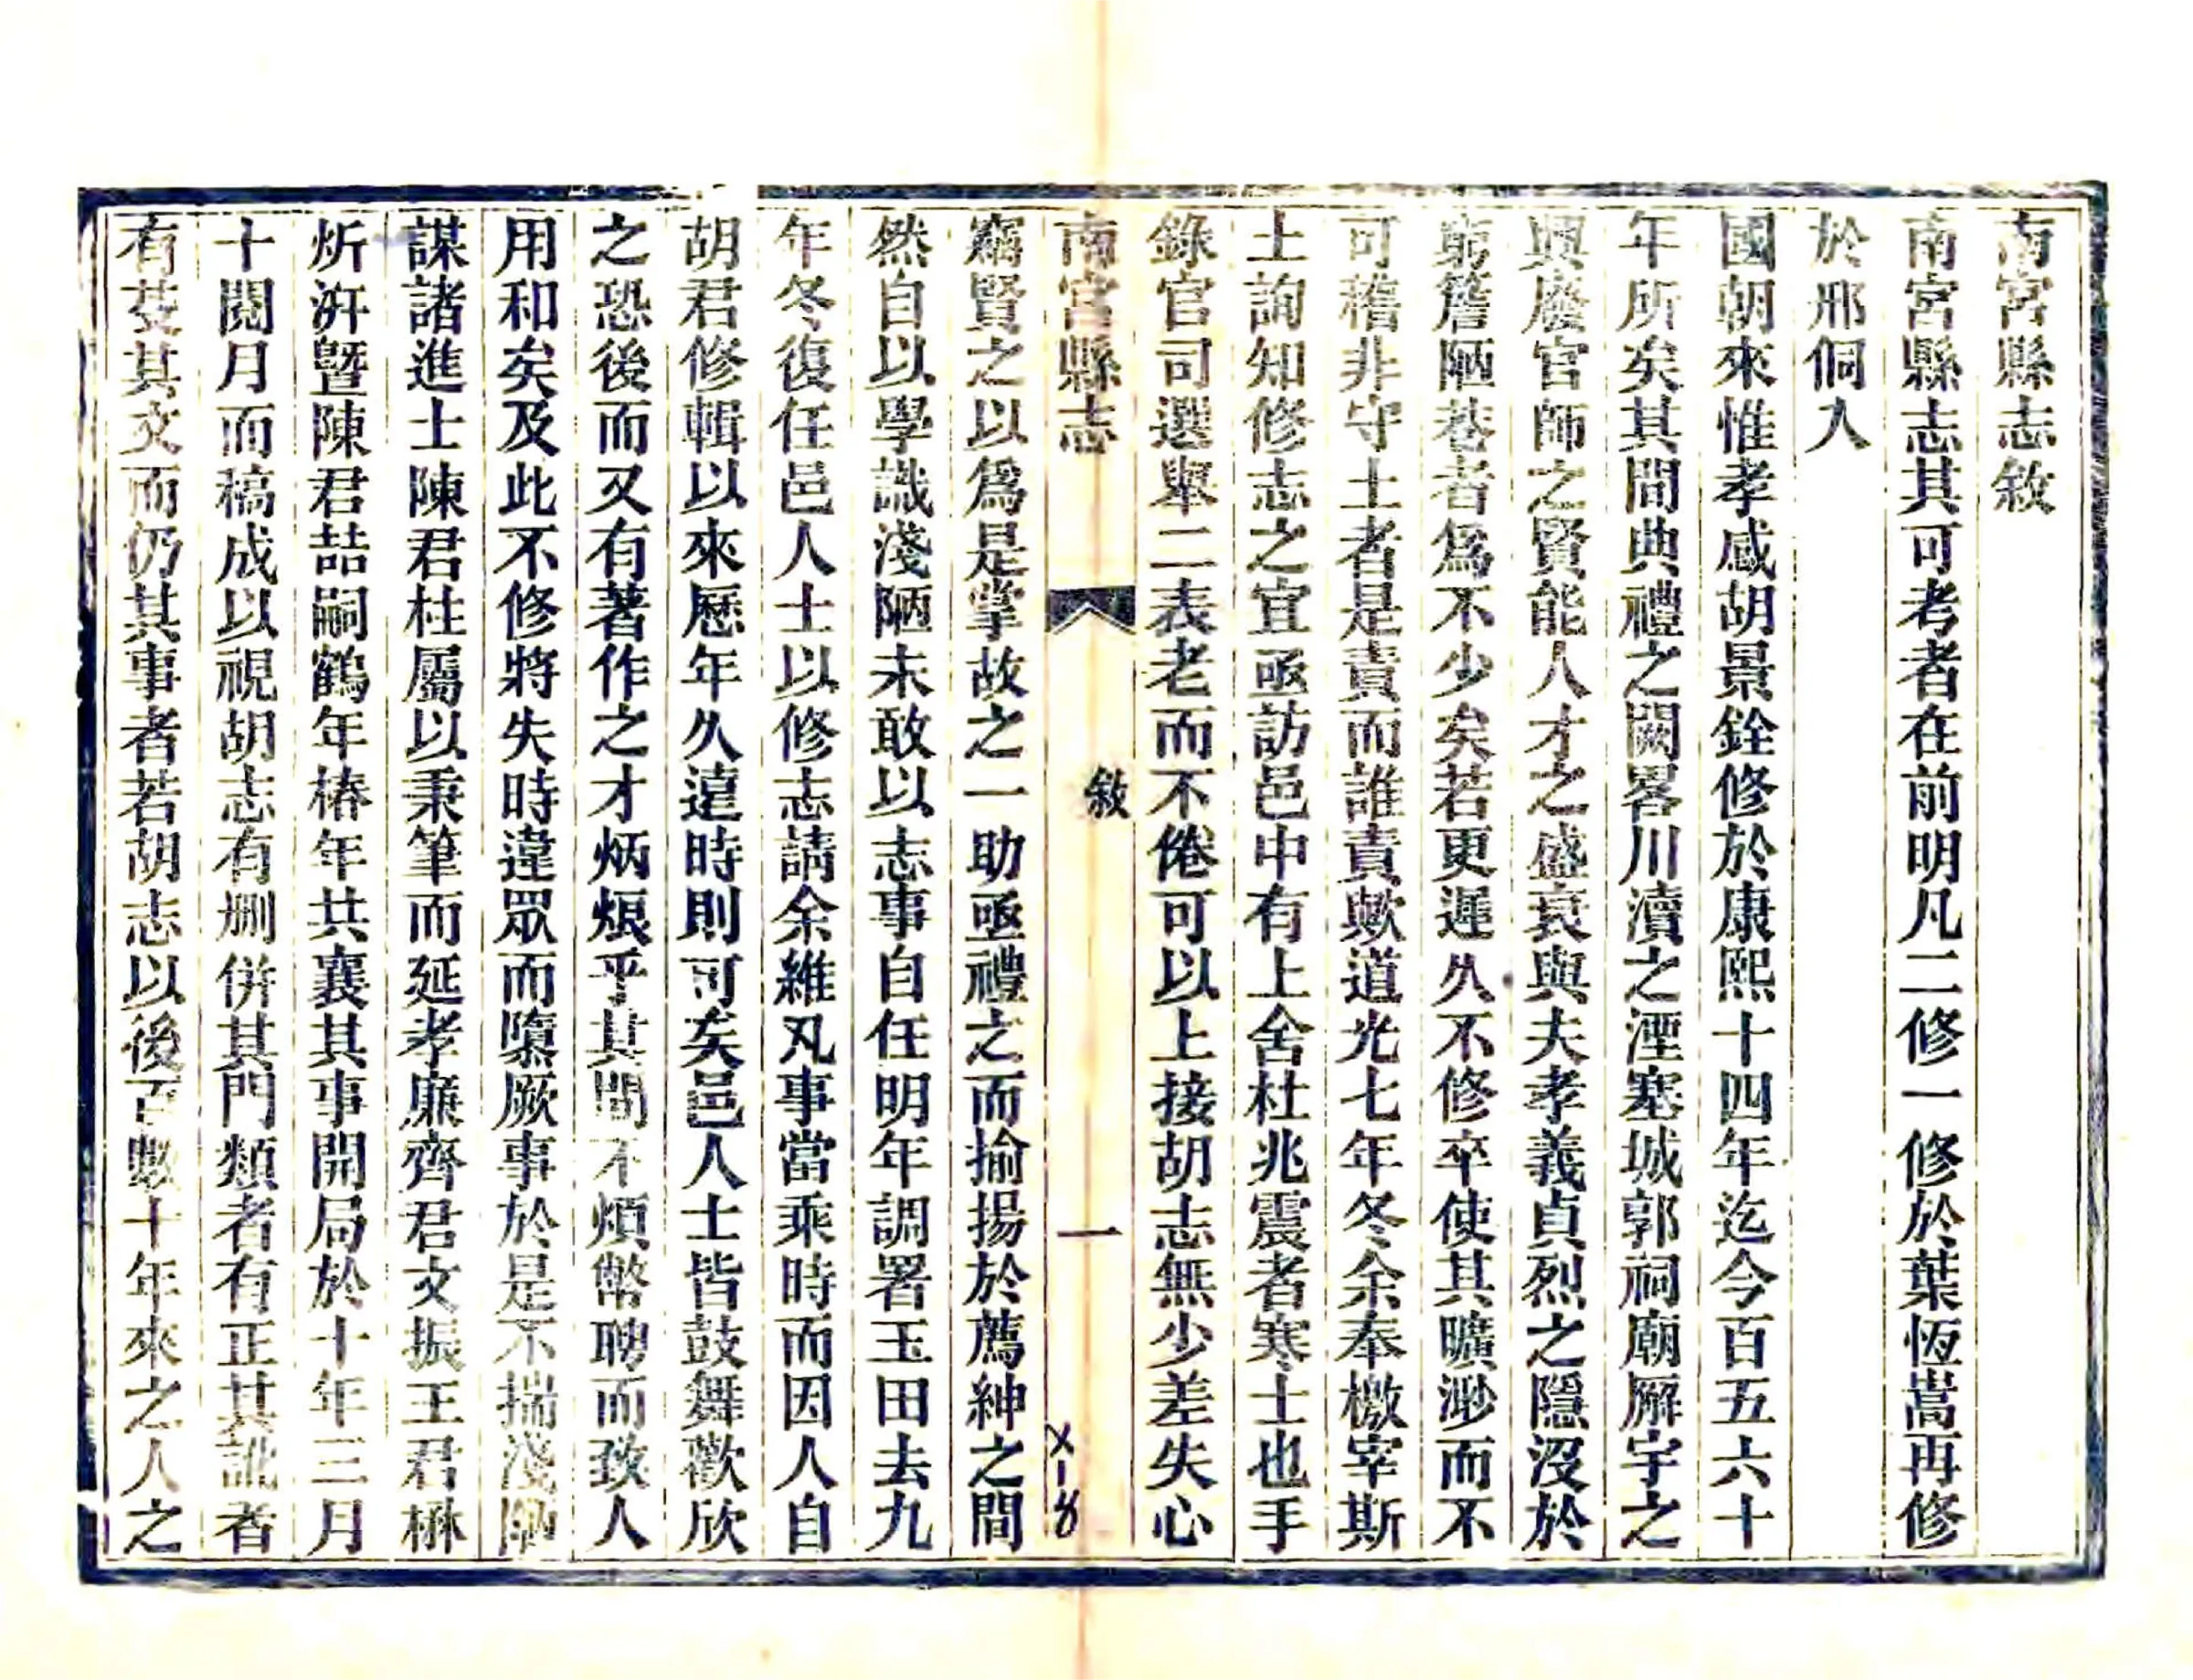 南宮縣志敘
南宮縣志其可考者在前明凡二修一修於葉恆嵩再修
於邢侗入
國朝來惟孝感胡景銓修於康熙十四年迄今百五六十
年所矣其間典禮之闕畧川瀆之湮塞城郭祠廟廨宇之
興廢官師之賢能人才之盛衰與夫孝義貞烈之隱沒於
窮簷陋巷者爲不少矣若更遲久不修卒使其曠渺而不
可稽非守土者是責而誰責歟道光七年冬余奉檄宰斯
土詢知修志之宜亟訪邑中有上舍杜兆震者寒士也手
錄官司選舉二表老而不倦可以上接胡志無少差失心
南宮縣志
敘
一
X-8
竊賢之以爲是掌故之一助亟禮之而揄揚於薦紳之間
然自以學識淺陋未敢以志事自任明年調署玉田去九
年冬復任邑人士以修志請余維凡事當乘時而因人自
胡君修輯以來歷年久遠時則可矣邑人士皆鼓舞歡欣
之恐後而又有著作之才炳烺乎其間不煩幣聘而致人
用和矣及此不修將失時違眾而隳厥事於是不揣淺陋
謀諸進士陳君柱屬以秉筆而延孝廉齊君文振王君楙
炘汧暨陳君喆嗣鶴年椿年共襄其事開局於十年三月
十閱月而稿成以視胡志有刪併其門類者有正其訛者
有芟其文而仍其事者若胡志以後百數十年來之人之